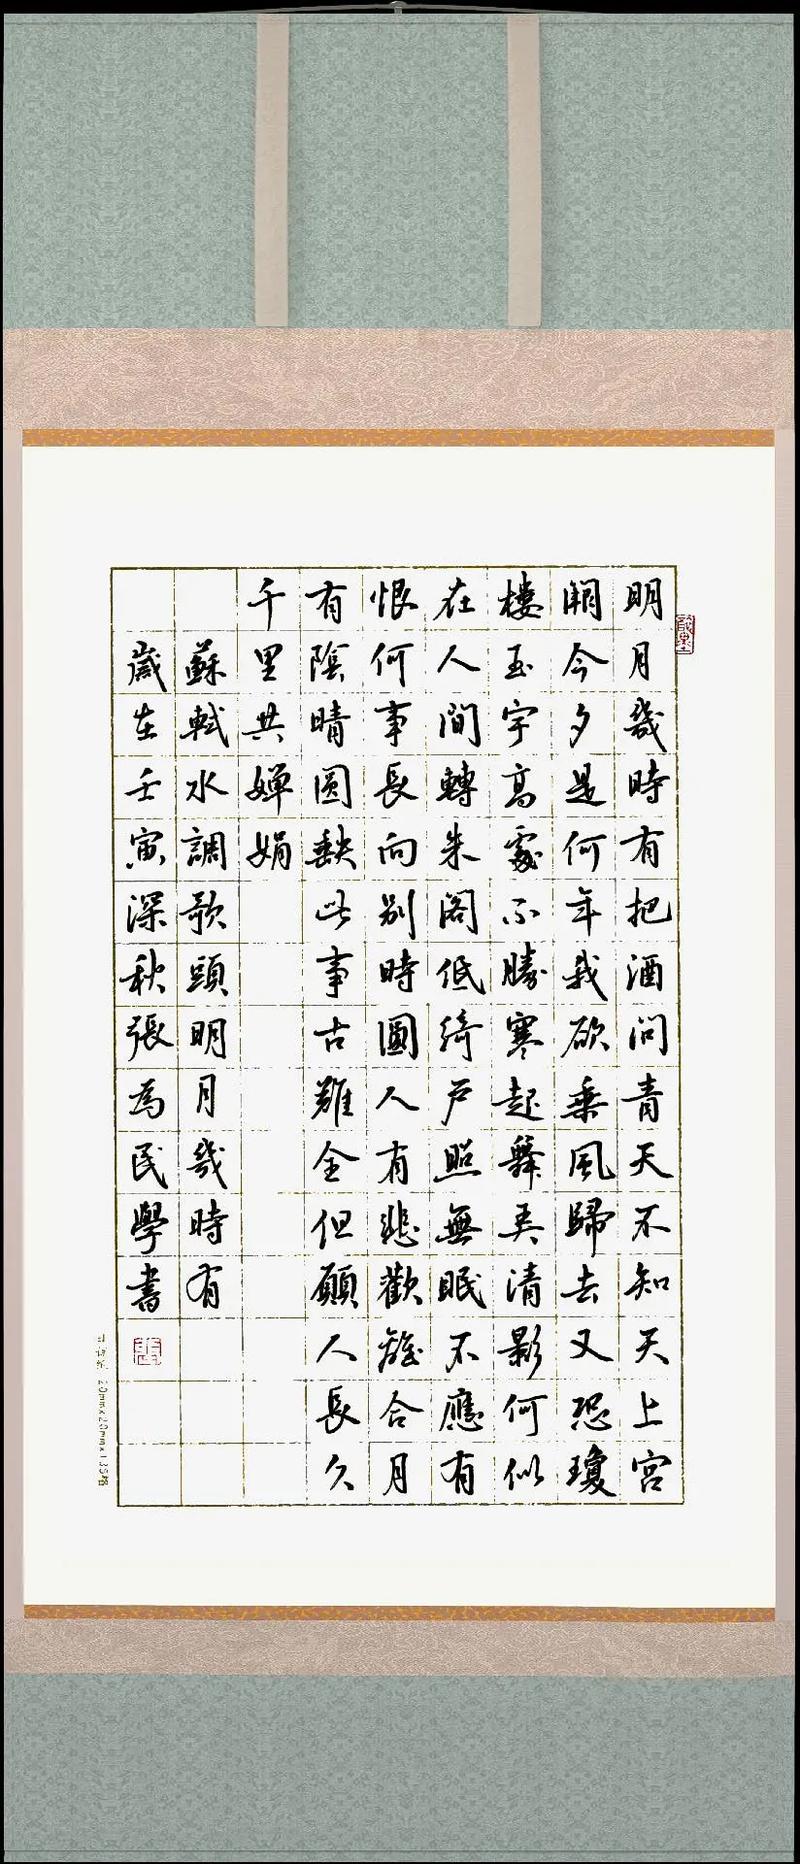 明月幾時有把酒問青天不知天上宮
闕今夕是何年我欲乘風歸去又恐瓊
樓玉宇高處不勝寒起舞弄清影何似
在人間轉朱閣低綺戶照無眠不應有
恨何事長向別時圓人有悲歡離合月
有陰晴圓缺此事古難全但願人長久
千里共嬋娟
蘇軾水調歌頭明月幾時有
歲在壬寅深秋張為民學書
20mmx20mmx135格